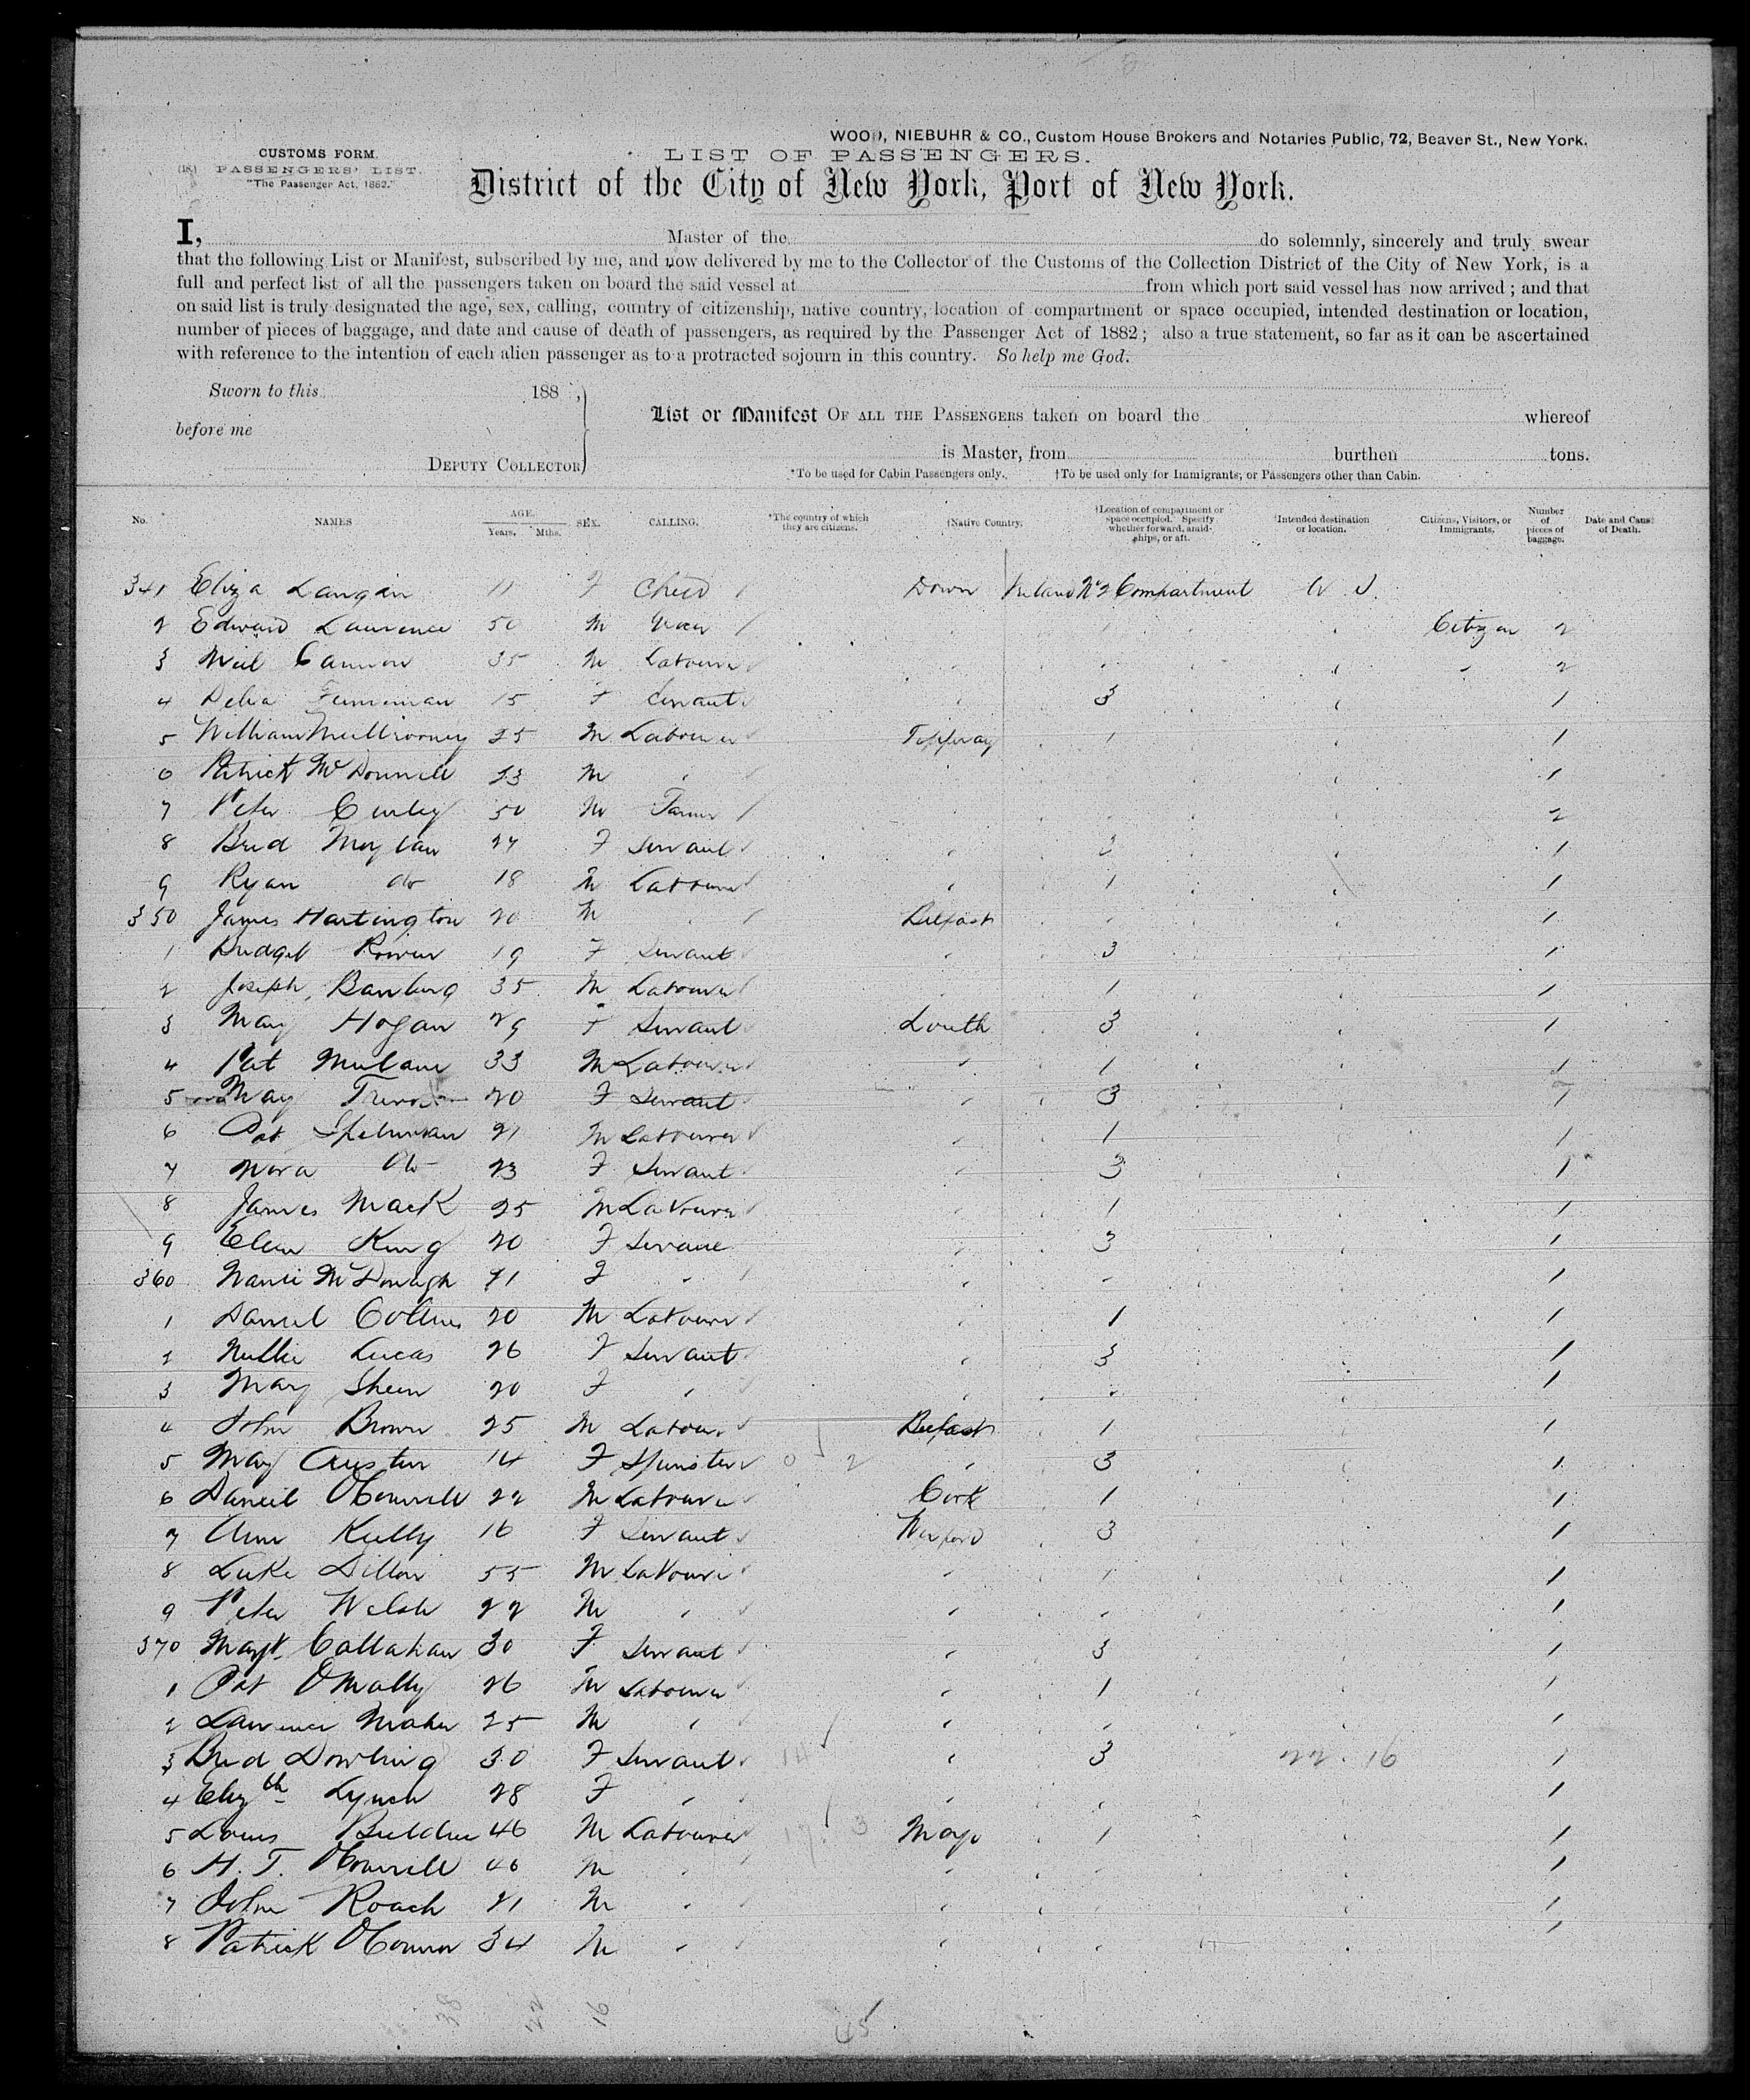 WOOD, NIEBUHR & CO., Custom House Brokers and Notaries Public, 72, Beaver St., New York.
CUSTOMS FORM.
PASSENGERS' LIST.
"The Passenger Act, 1882."
LIST OF PASSENGERS.
District of the City of New York, Port of New York.
I, Master of the do solemnly, sincerely and truly swear
that the following List or Manifest, subscribed by me, and now delivered by me to the Collector of the Customs of the Collection District of the City of New York, is a
full and perfect list of all the passengers taken on board the said vessel at from which port said vessel has now arrived ; and that
on said list is truly designated the age, sex, calling, country of citizenship, native country, location of compartment or space occupied, intended destination or location,
number of pieces of baggage, and date and cause of death of passengers, as required by the Passenger Act of 1882 ; also a true statement, so far as it can be ascertained
with reference to the intention of each alien passenger as to a protracted sojourn in this country. So help me God.
Sworn to this 188 ,
before me
DEPUTY COLLECTOR
List or Manifest OF ALL THE PASSENGERS taken on board the whereof
is Master, from burthen tons.
*To be used for Cabin Passengers only. †To be used only for Immigrants, or Passengers other than Cabin.
No. NAMES AGE. Years. Mths. SEX. CALLING. *The country of which they are citizens. †Native Country. †Location of compartment or space occupied. Specify whether forward, amidships, or aft. †Intended destination or location. Citizens, Visitors, or Immigrants. Number of pieces of baggage. Date and Cause of Death.
341 Eliza Langan 11 F Child Down Ireland No 2 Compartment U S.
2 Edward Laurence 50 M Citizen 2
3 Neil Cannon 35 M Labourer 2
4 Delia 15 F Servant 3 1
5 William Mullrooney 25 M Labourer 1 1
6 Patrick McDonnell 23 M 1
7 Peter Curley 50 M Farmer 2
8 Brid Moylan 24 F Servant 3 1
9 Ryan do 18 M Labourer 1 1
350 James Hartington 20 M Belfast 1
1 Bridget 19 F Servant 3 1
2 Joseph 35 M Labourer 1 1
3 Mary Hogan 29 F Servant Louth 3 1
4 Pat 33 M Labourer 1 1
5 May 20 F Servant 3 1
6 Pat Spelman 21 M Labourer 1 1
7 Nora do 23 F Servant 3 1
8 James Mack 25 M Labourer 1 1
9 Ellen King 20 F Servant 3 1
360 McDonagh 21 F 1
1 Daniel Collins 20 M Labourer 1 1
2 Nellie Lucas 26 F Servant 3 1
3 Mary 20 F 1
4 John Brown 25 M Labour Belfast 1 1
5 May Austin 14 F Spinster 0 2 3 1
6 Daniel OConnell 22 M Labourer Cork 1 1
7 Ann Kelly 16 F Servant Wexford 3 1
8 Luke Dillon 55 M Labourer 1 1
9 Peter Welsh 22 M 1
370 Margt Callahan 30 F Servant 3 1
1 Pat OMally 26 M Labourer 1 1
2 Lawrence Maher 25 M 1
3 Brid Dowling 30 F Servant 14 3 22 16 1
4 Elizth Lynch 28 F 1
5 Louis 46 M Labourer 17 3 Mayo 1 1
6 H. T. OConnell 46 M 1
7 John Roach 21 M 1
8 Patrick OConnor 34 M 1
38 22 16 45